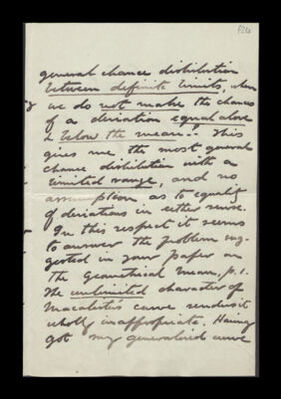 general chance distribution
between definite limits, when
we do not make the chances
of a deviation equal above
& below the mean? This
gives me the most general
chance distribution with a
limited range, and no
assumption as to equality
of deviations in either sense.
In this respect it seems
to answer the problem sug-
gested in your paper on
the Geometrical Mean, p. 1.
The unlimited character of
Macalister's curve renders it
wholly inappropriate. Having
got my generalised curve